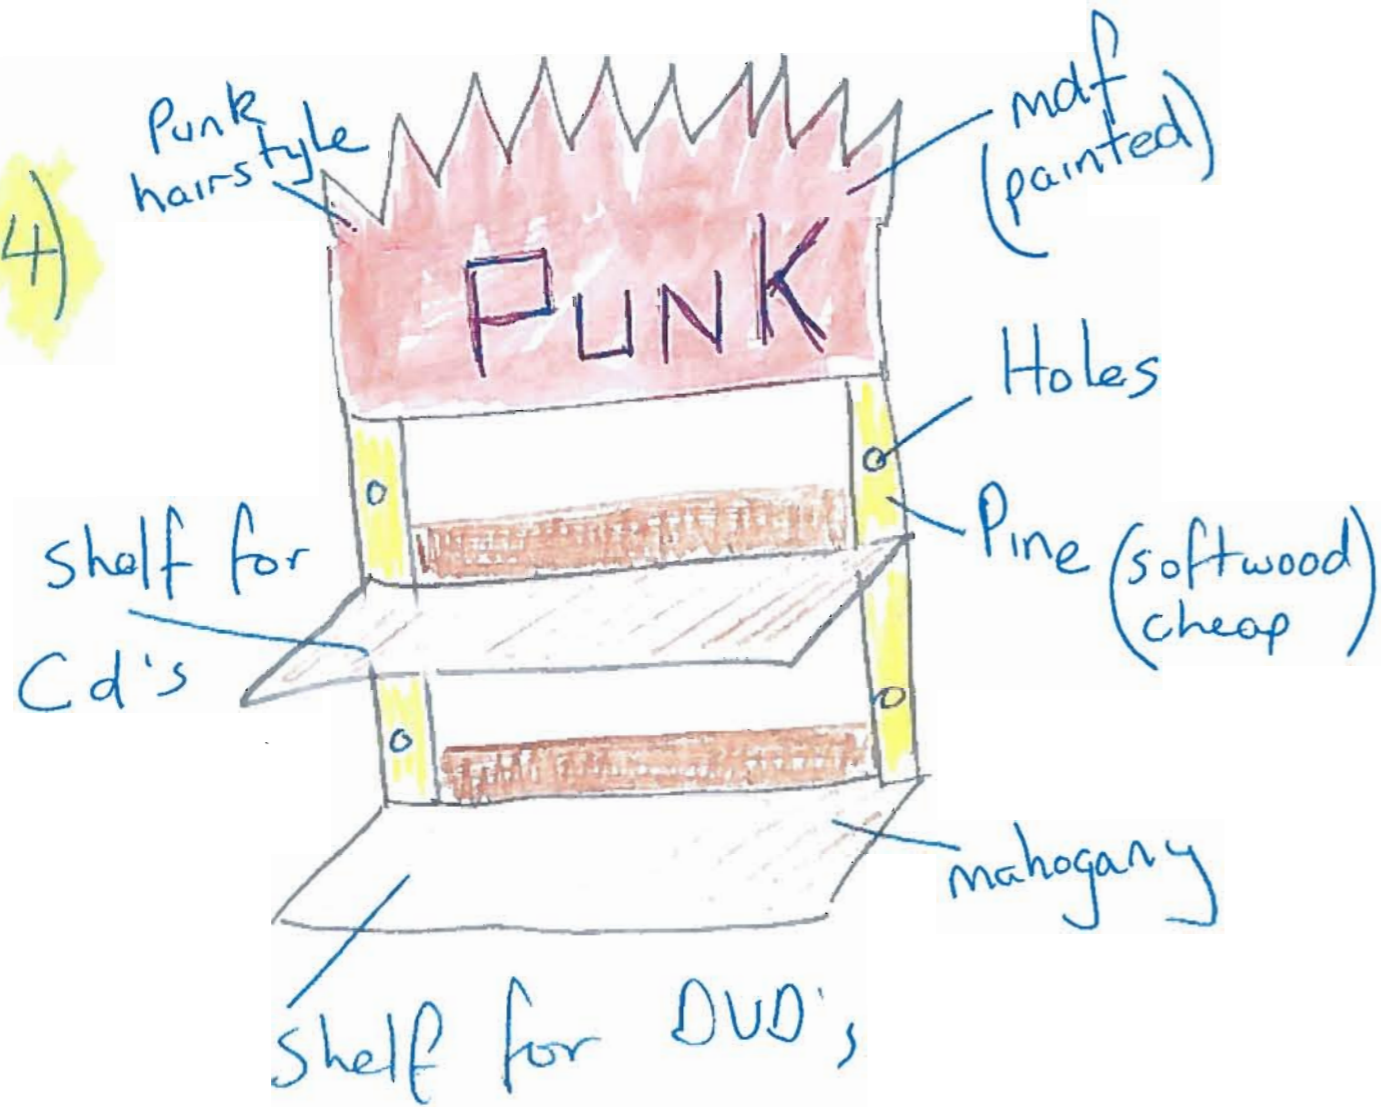 4)
Punk
hairstyle
mdf
(painted)
PUNK
Holes
Pine (softwood)
cheap
Shelf for
Cd's
mahogany
Shelf for DVD's